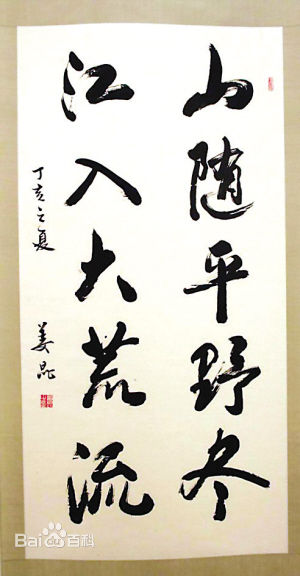 山随平野尽
江入大荒流
丁亥之夏
姜
Bai百科